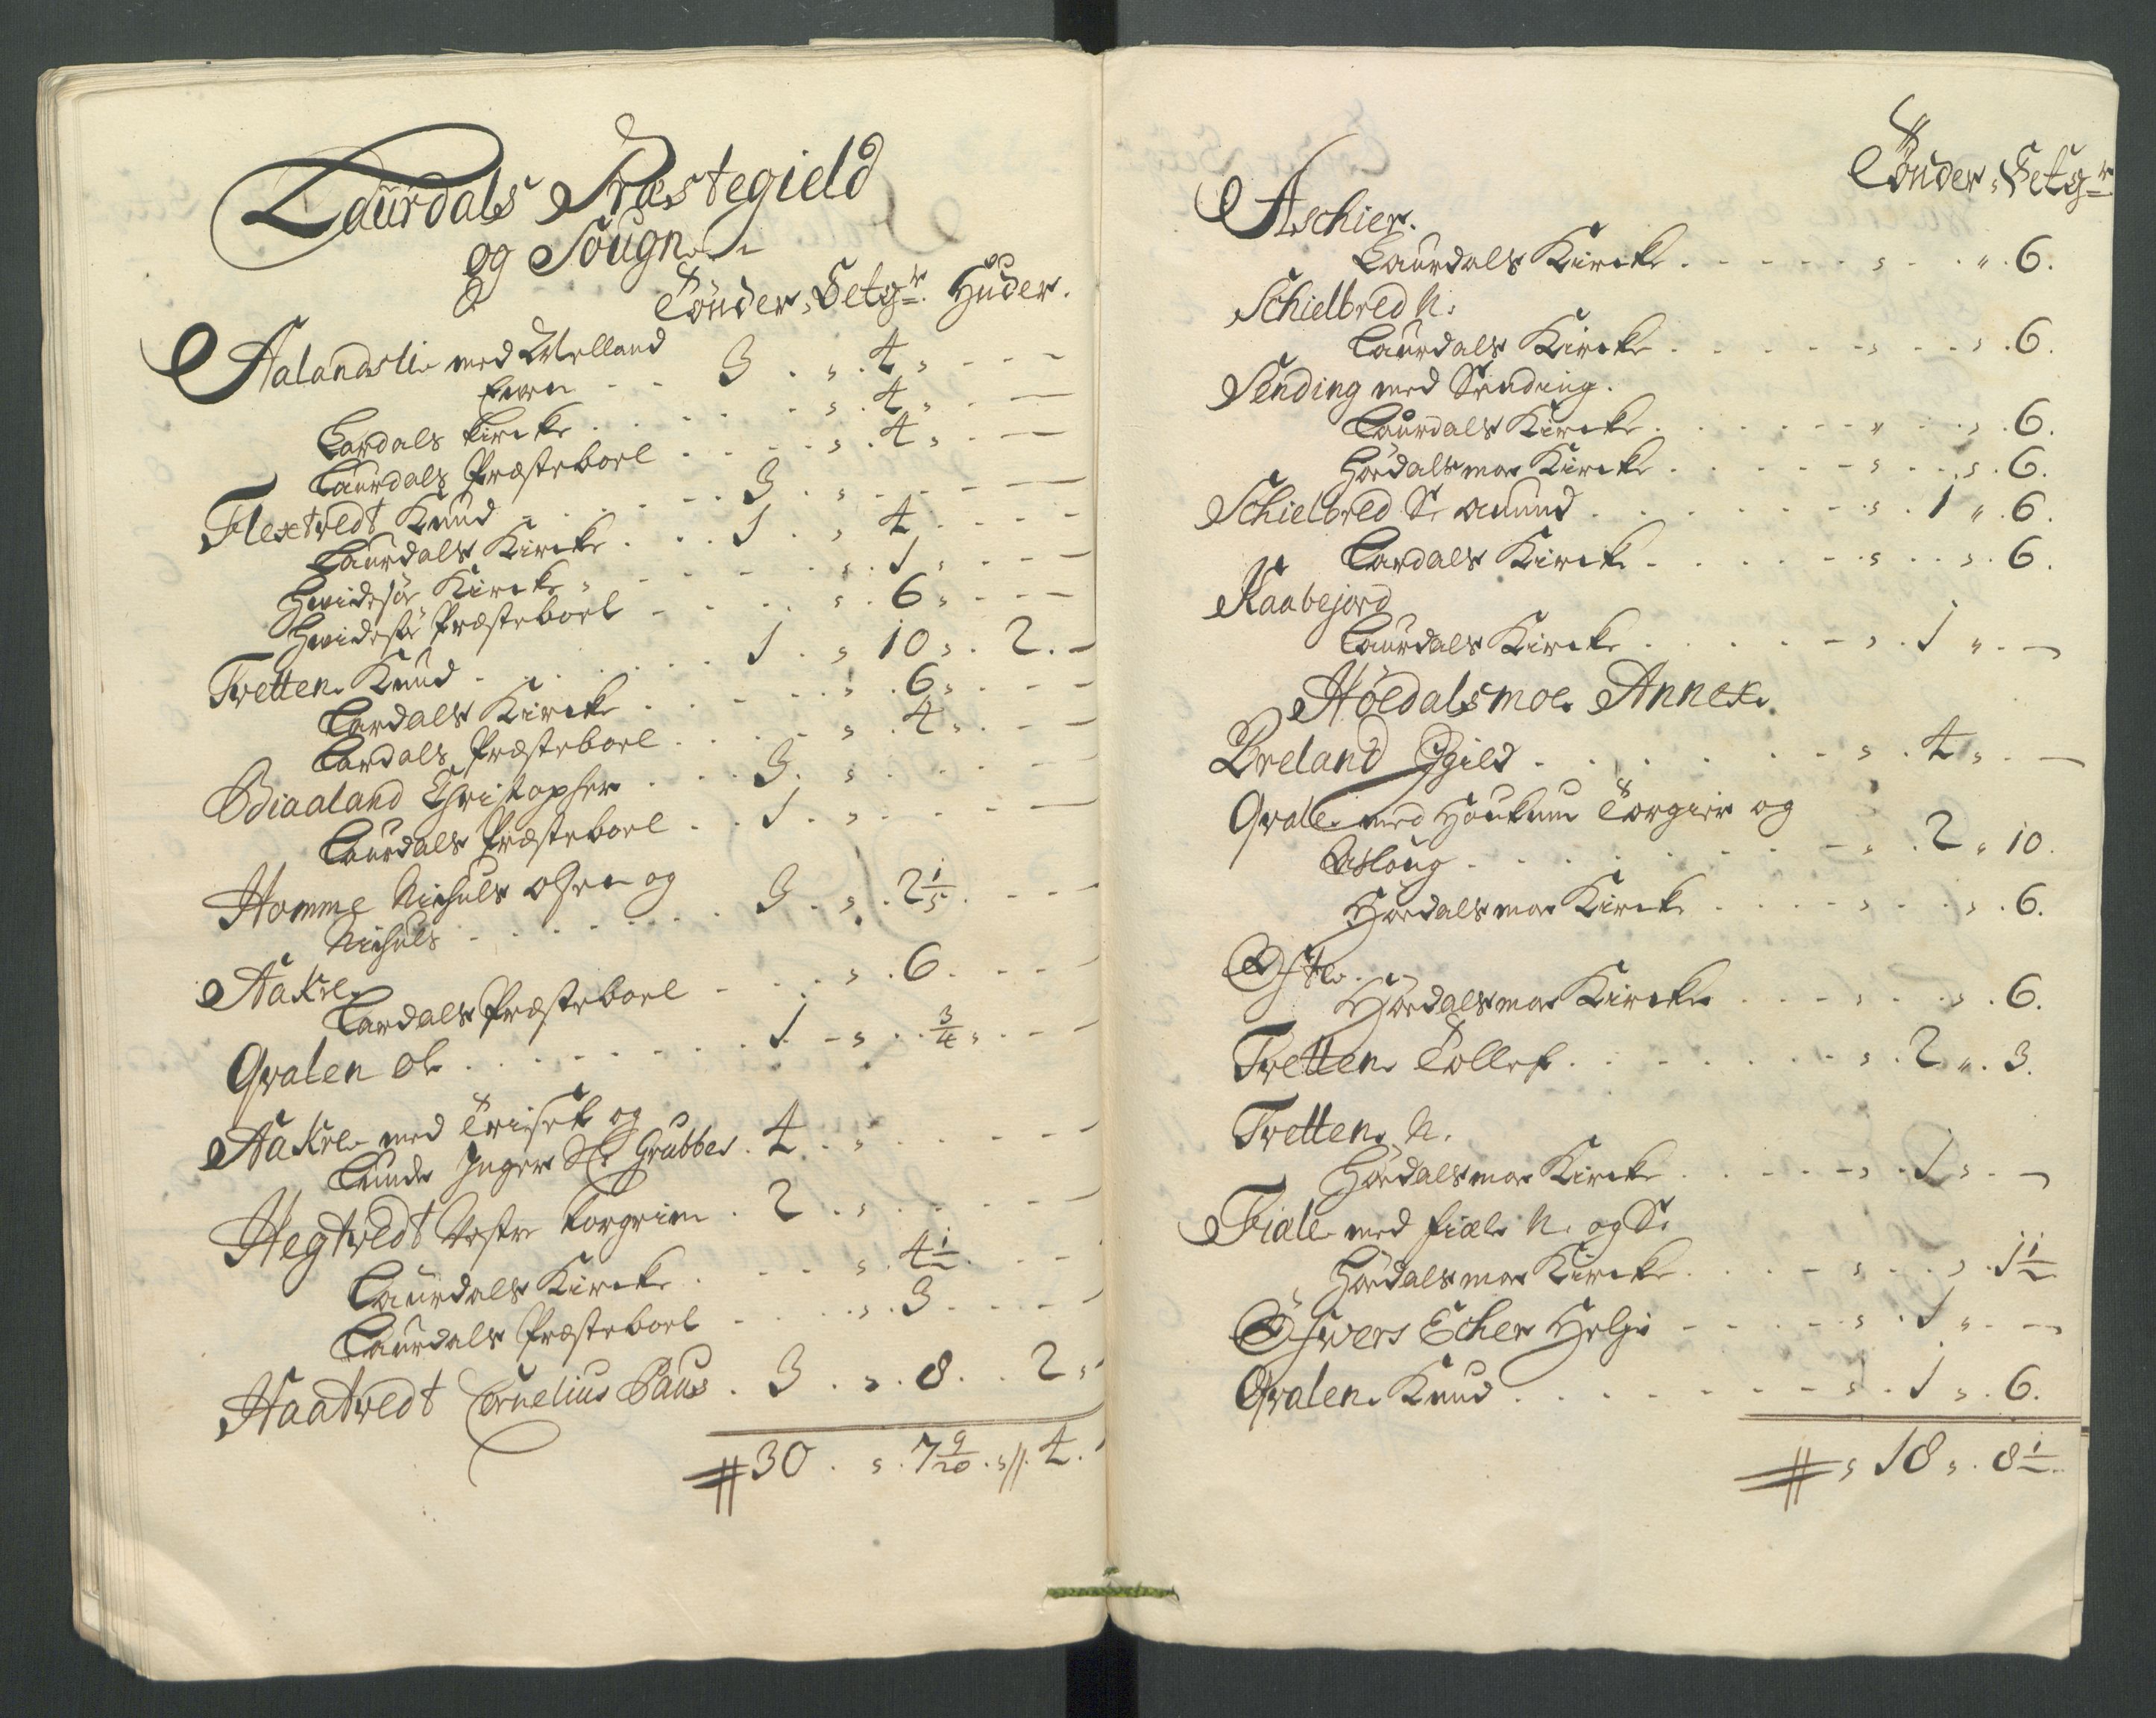 Laurdals Præstegield
og Sougn
Tönder, Setgr. Huder.
Aalandslie med Melland
Even - - 3 . , . 4 , - - -
Lardals Kircke . . . . . , . 4 , . —
Laurdals Præsteboel . . . . , . 4 , . —
Flextvedt Knud - . . - . . 3 . , . - . - —
Laurdals Kircke . . . 1 . , 4 . - - -
Hvidesöe Kircke , - - - - , . 1 , . - —
Hvidesöe Præsteboel - . . . , . 6 , - - -
Tvetten Knud - . . . . . 1 . , 10 , . 2 . -
Lardals Kircke . . . - . . , . 6 , . - -
Lardals Præsteboel . . . . , . 4 , . - -
Biaaland Christopher . . . 3 . , . . . - -
Laurdals Præsteboel . . 1 . , . . - —
Homme Nichuls Olsen og
Nichuls - . . . . . . 3 . , . 2 1/5 . - - -
Aakre
Lardals Præsteboel - . . . , . 6 . - - -
Qvalen Ole . . . . . . . 1 - , . . 3/4 , . - -
Aakre med Triset og
Lunde Inger Sl. Grubbes . 4 . , . . . - - -
Hegtvedt Vestre Torgrim . 2 . , . . . - -
Laurdals Kircke . . - - , . 4 1/2 . . - -
Laurdals Præsteboel - . . . , . 3 . - - - -
Haatvedt Cornelius Paus . 3 . , . 8 . . 2 ,
# 30 . , . 7 9/20 . , //. 4 .
Tönder , Setgr
Aschier.
Laurdals Kircke . - - - - , . . " . 6 .
Schielbred N.
Laurdals Kircke . . . . - , . - , . 6 .
Sending med Sending .
Laurdals Kircke . . . . . - " . . , . 6 .
Höedalsmoe Kircke . . . . - , . . , . 6 .
Schielbred S. Amund . . . . . . - , . 1 " . 6 .
Lardals Kircke . . . . . - , . . , . 6 .
Raabejord
Laurdals Kircke . . . . . - , . 1 " . —
Höedalsmoe Annex.
Breland Egild . . . . . . . - , . 4 , . —
Qvale med Houkum Torgier og
Asloug - . . . . . . . . - , . 2 " 10 .
Höedalsmoe Kircke . . . . , . . , . 6 .
Höedalsmoe Kircke . . . - , . . , . 6 .
Tvetten Tollef . . . . . . . - , . 2 " . 3 .
Tvetten N.
Höedalsmoe Kircke . . . . - , . 1 , . —
Fiale med Fiale N. og S.
Höedalsmoe Kircke . . . - , . . , . 1 1/2
Öfwers Echer Helje - - . . . - , . 1 " . —
Qvalen Knud . . . . - . . - , . 1 , . 6 .
# , 18 , . 8 1/2 .